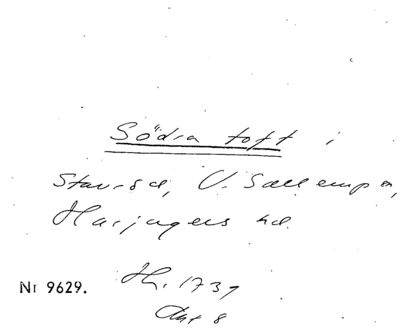 Södra toft i
V. Sallerup sn,
Harjagers hd.
Nr 9629. Hh. 1739
Akt 8